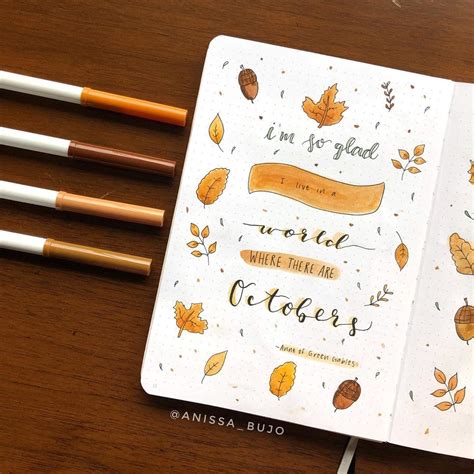 i'm so glad
I live in a
world
WHERE THERE ARE
Octobers
-Anne of Green Gables
@ANISSA_BUJO